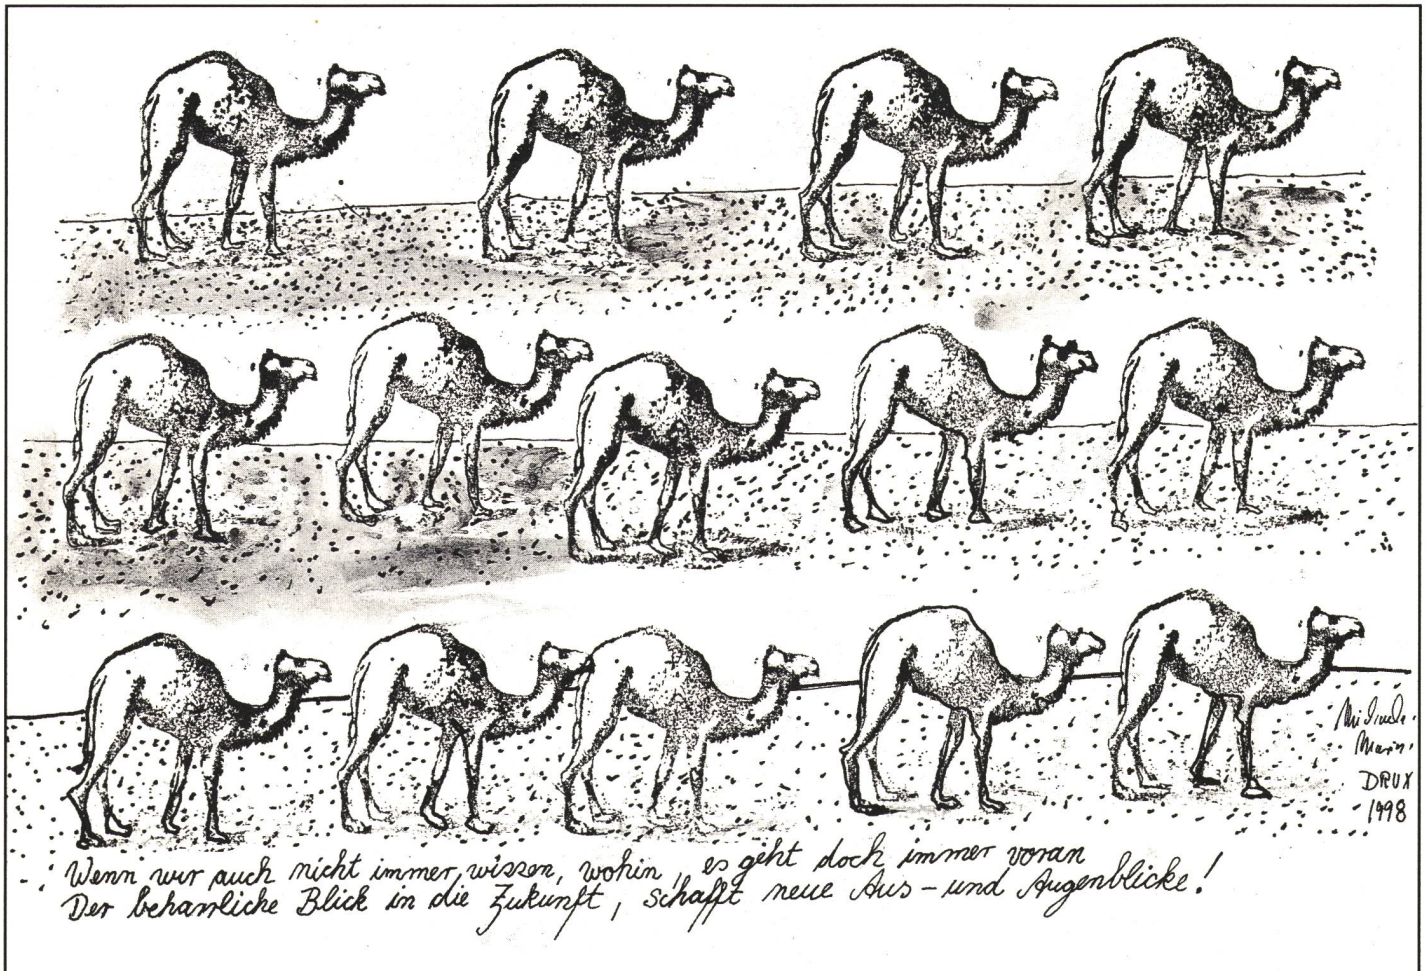 DRUX
1998
Wenn wir auch nicht immer wissen, wohin, es geht doch immer voran
Der beharrliche Blick in die Zukunft, schafft neue Aus - und Augenblicke!